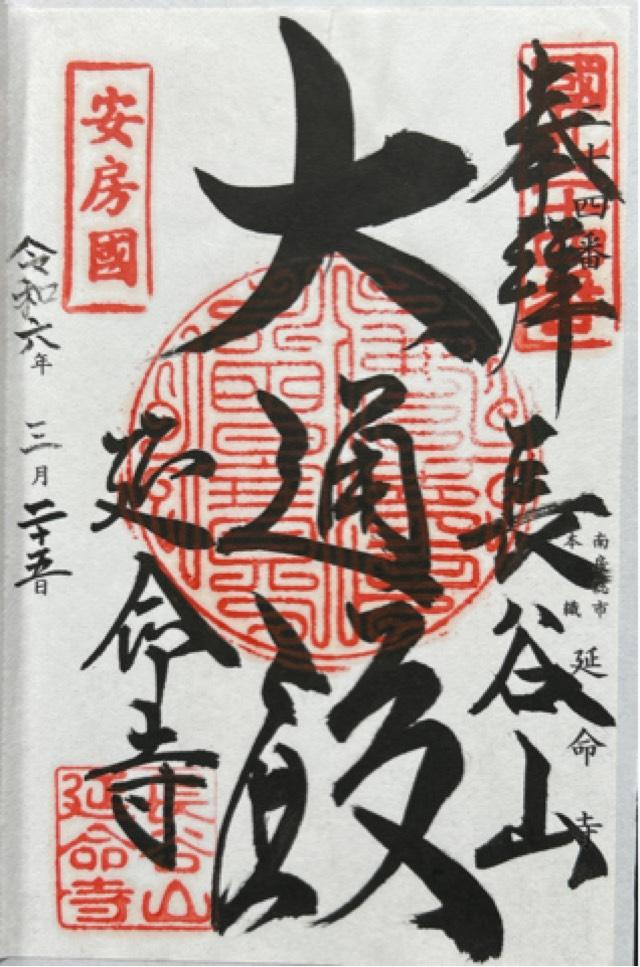 奉拝
長谷山
二十四番
南房総市
本織
延命寺
大通殿
延命寺
安房國
令和六年 三月二十五日
長谷山
延命寺